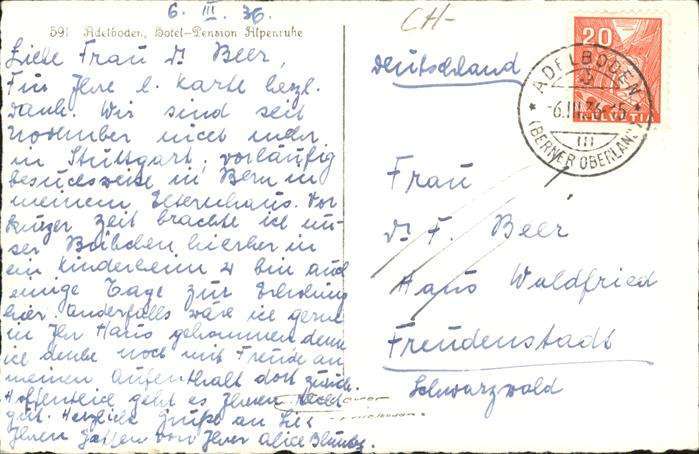 6. III. 36.
CH-
591 Adelboden, Hotel-Pension Alpenruhe
Liebe Frau Dr Beer,
Für Ihre l. Karte herzl.
Dank. Wir sind seit
November nicht mehr
in Stuttgart, vorläufig
besuchsweise in Bern in
meinem Elternhaus. Vor
kurzer Zeit brachte ich un-
ser Bübchen hierher in
ein Kinderheim & bin auch
einige Tage zur Erholung
hier. Andernfalls wäre ich gerne
in Ihr Haus gekommen, denn
ich denke noch mit Freude an
meinen Aufenthalt dort zurück.
Hoffentlich geht es Ihnen recht
gut. Herzliche Grüße an Sie &
Ihren Gatten von Ihrer Alice
Deutschland
Frau
Dr F. Beer
Haus Waldfried
Freudenstadt
Schwarzwald
20
HELVETIA
ADELBODEN
-6.III.36.-5
(BERNER OBERLAND)